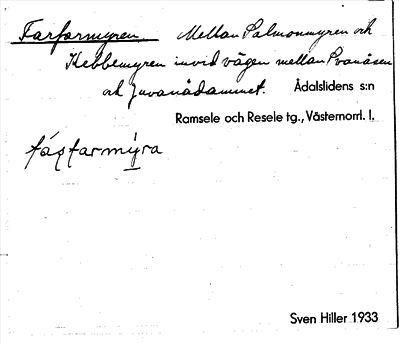 Farfarmyren   Mellan Palmonmyren och
Kebbemyren invid vägen mellan Svanåsen
och Juvanådammet. Ådalslidens s:n
Ramsele och Resele tg., Västernorrl. l.
fárfarmýra
Sven Hiller 1933